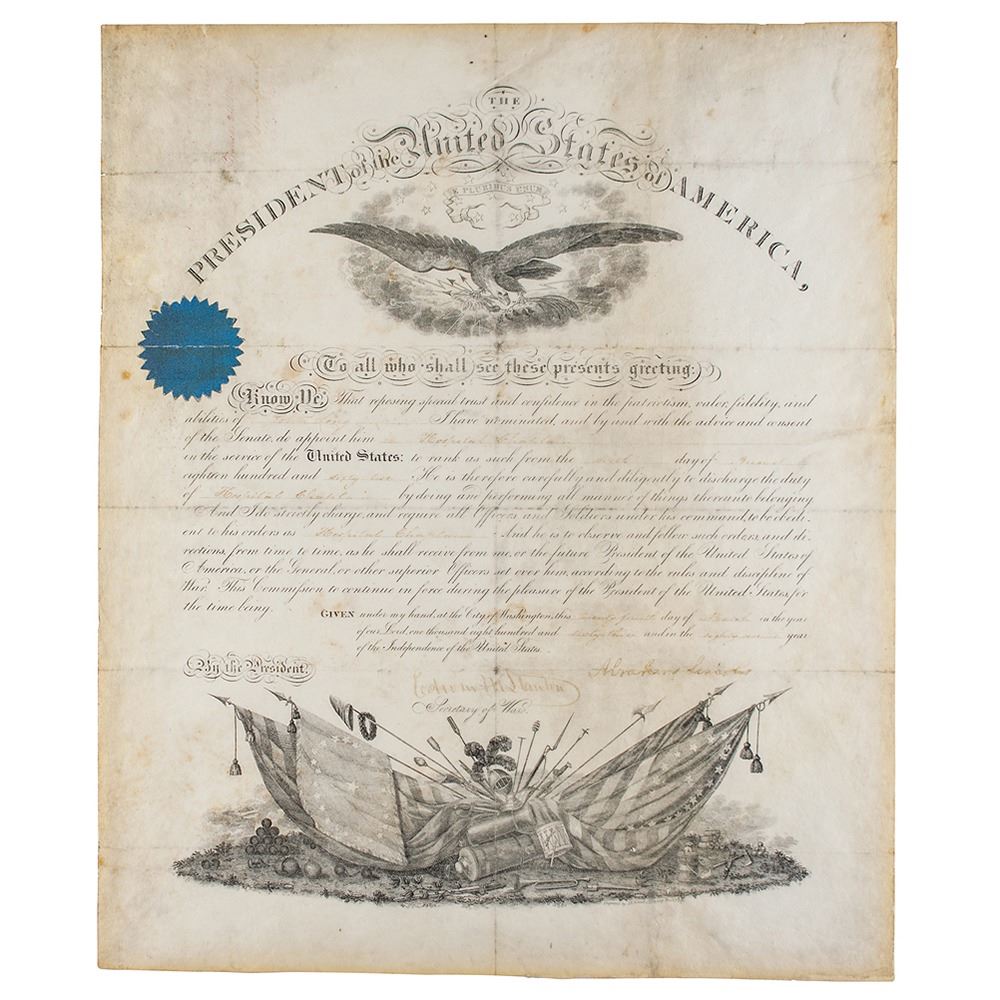 THE
PRESIDENT of the United States of AMERICA,
E PLURIBUS UNUM
To all who shall see these presents greeting:
Know Ye, That reposing special trust and confidence in the patriotism, valor, fidelity, and
abilities of I have nominated, and by and with the advice and consent
of the Senate, do appoint him Hospital Chaplain
in the service of the United States: to rank as such from the day of
eighteen hundred and sixty He is therefore carefully and diligently to discharge the duty
of Hospital Chaplain by doing and performing all manner of things thereunto belonging.
And I do strictly charge, and require all Officers and Soldiers under his command, to be obedi-
ent to his orders as Hospital Chaplain And he is to observe and follow such orders, and di-
rections, from time to time, as he shall receive from me, or the future President of the United States of
America, or the General, or other superior Officers set over him, according to the rules and discipline of
War. This Commission to continue in force during the pleasure of the President of the United States, for
the time being.
GIVEN under my hand, at the City of Washington, this day of March in the year
of our Lord, one thousand eight hundred and sixty three and in the eighty seventh year
of the Independence of the United States.
By the President.
Abraham Lincoln
Edwin M Stanton
Secretary of War.